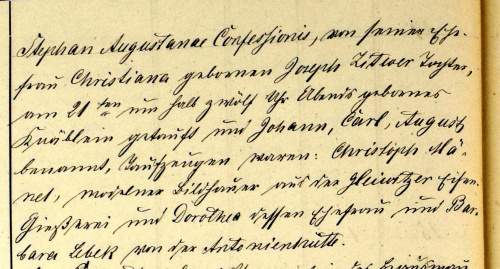 Stephan Augustanae Confessionis, von seiner Ehe-
frau Christiana gebornen Joseph Zitwer Tochter,
am 21ten um halb zwölf Uhr Abends gebornes
Knäblein getauft und Johann, Carl, August
benannt, Taufzeugen waren: Christoph Mä-
net, modelner Bildhauer aus der Gleiwitzer Eisen-
Gießerei und Dorothea dessen Ehefrau und Bar-
bara Lebek von der Antonienhütte.